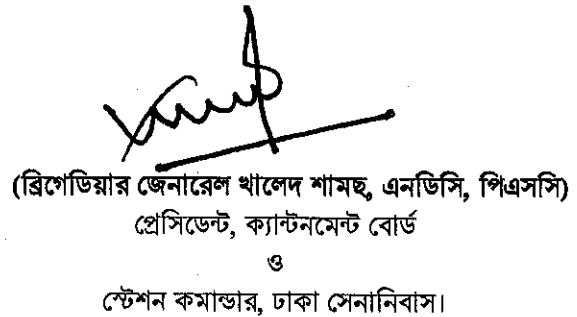 (ব্রিগেডিয়ার জেনারেল খালেদ শামছ, এনডিসি, পিএসসি)
প্রেসিডেন্ট, ক্যান্টনমেন্ট বোর্ড
ও
স্টেশন কমান্ডার, ঢাকা সেনানিবাস।